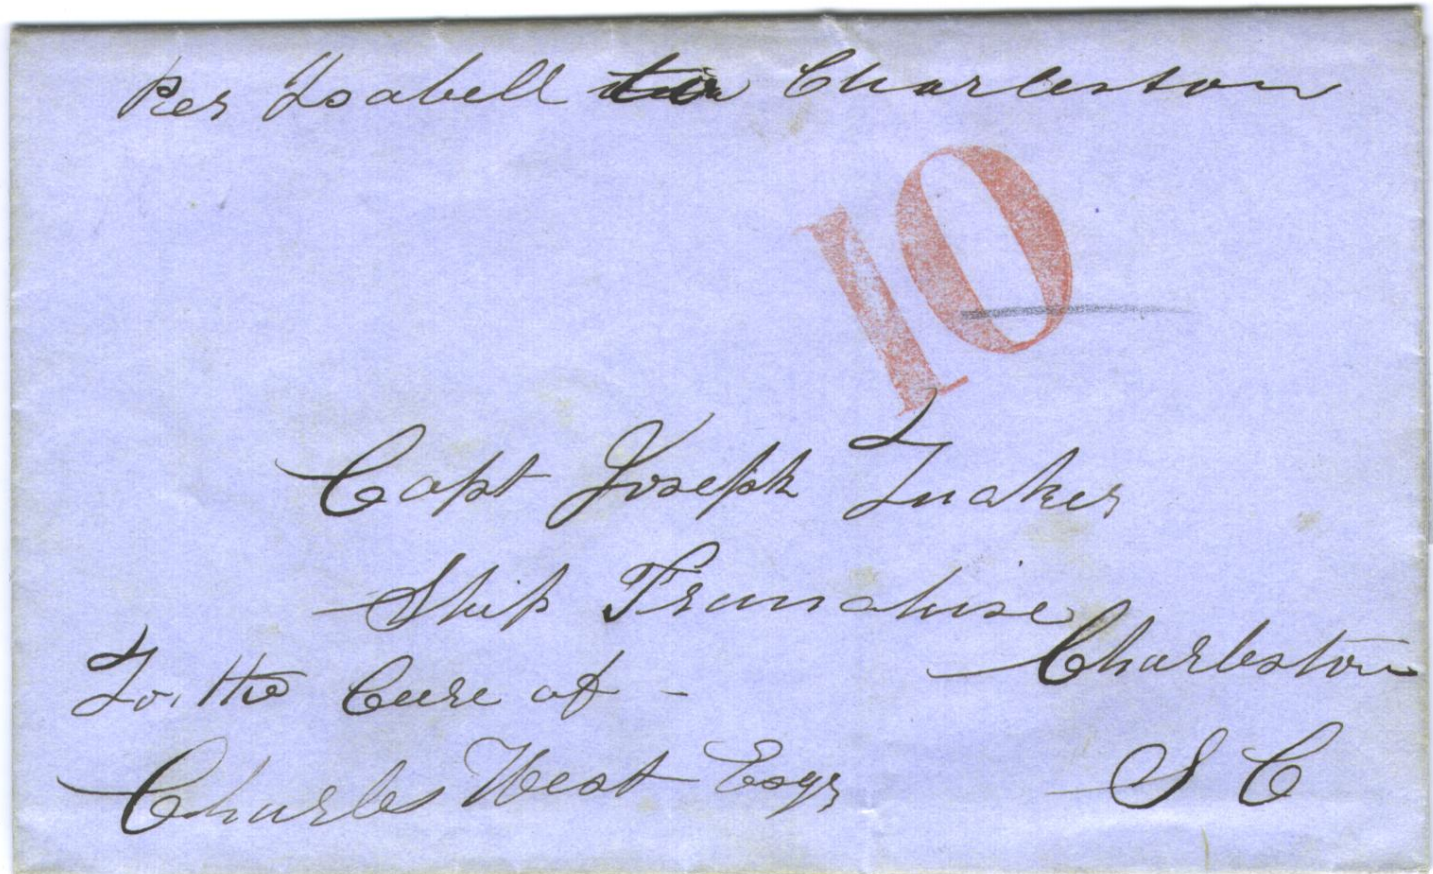 Per Isabell via Charleston
10
Capt Joseph Tucker
Ship Franchise
Charleston
To the Care of -
Charles West Esqr
S C